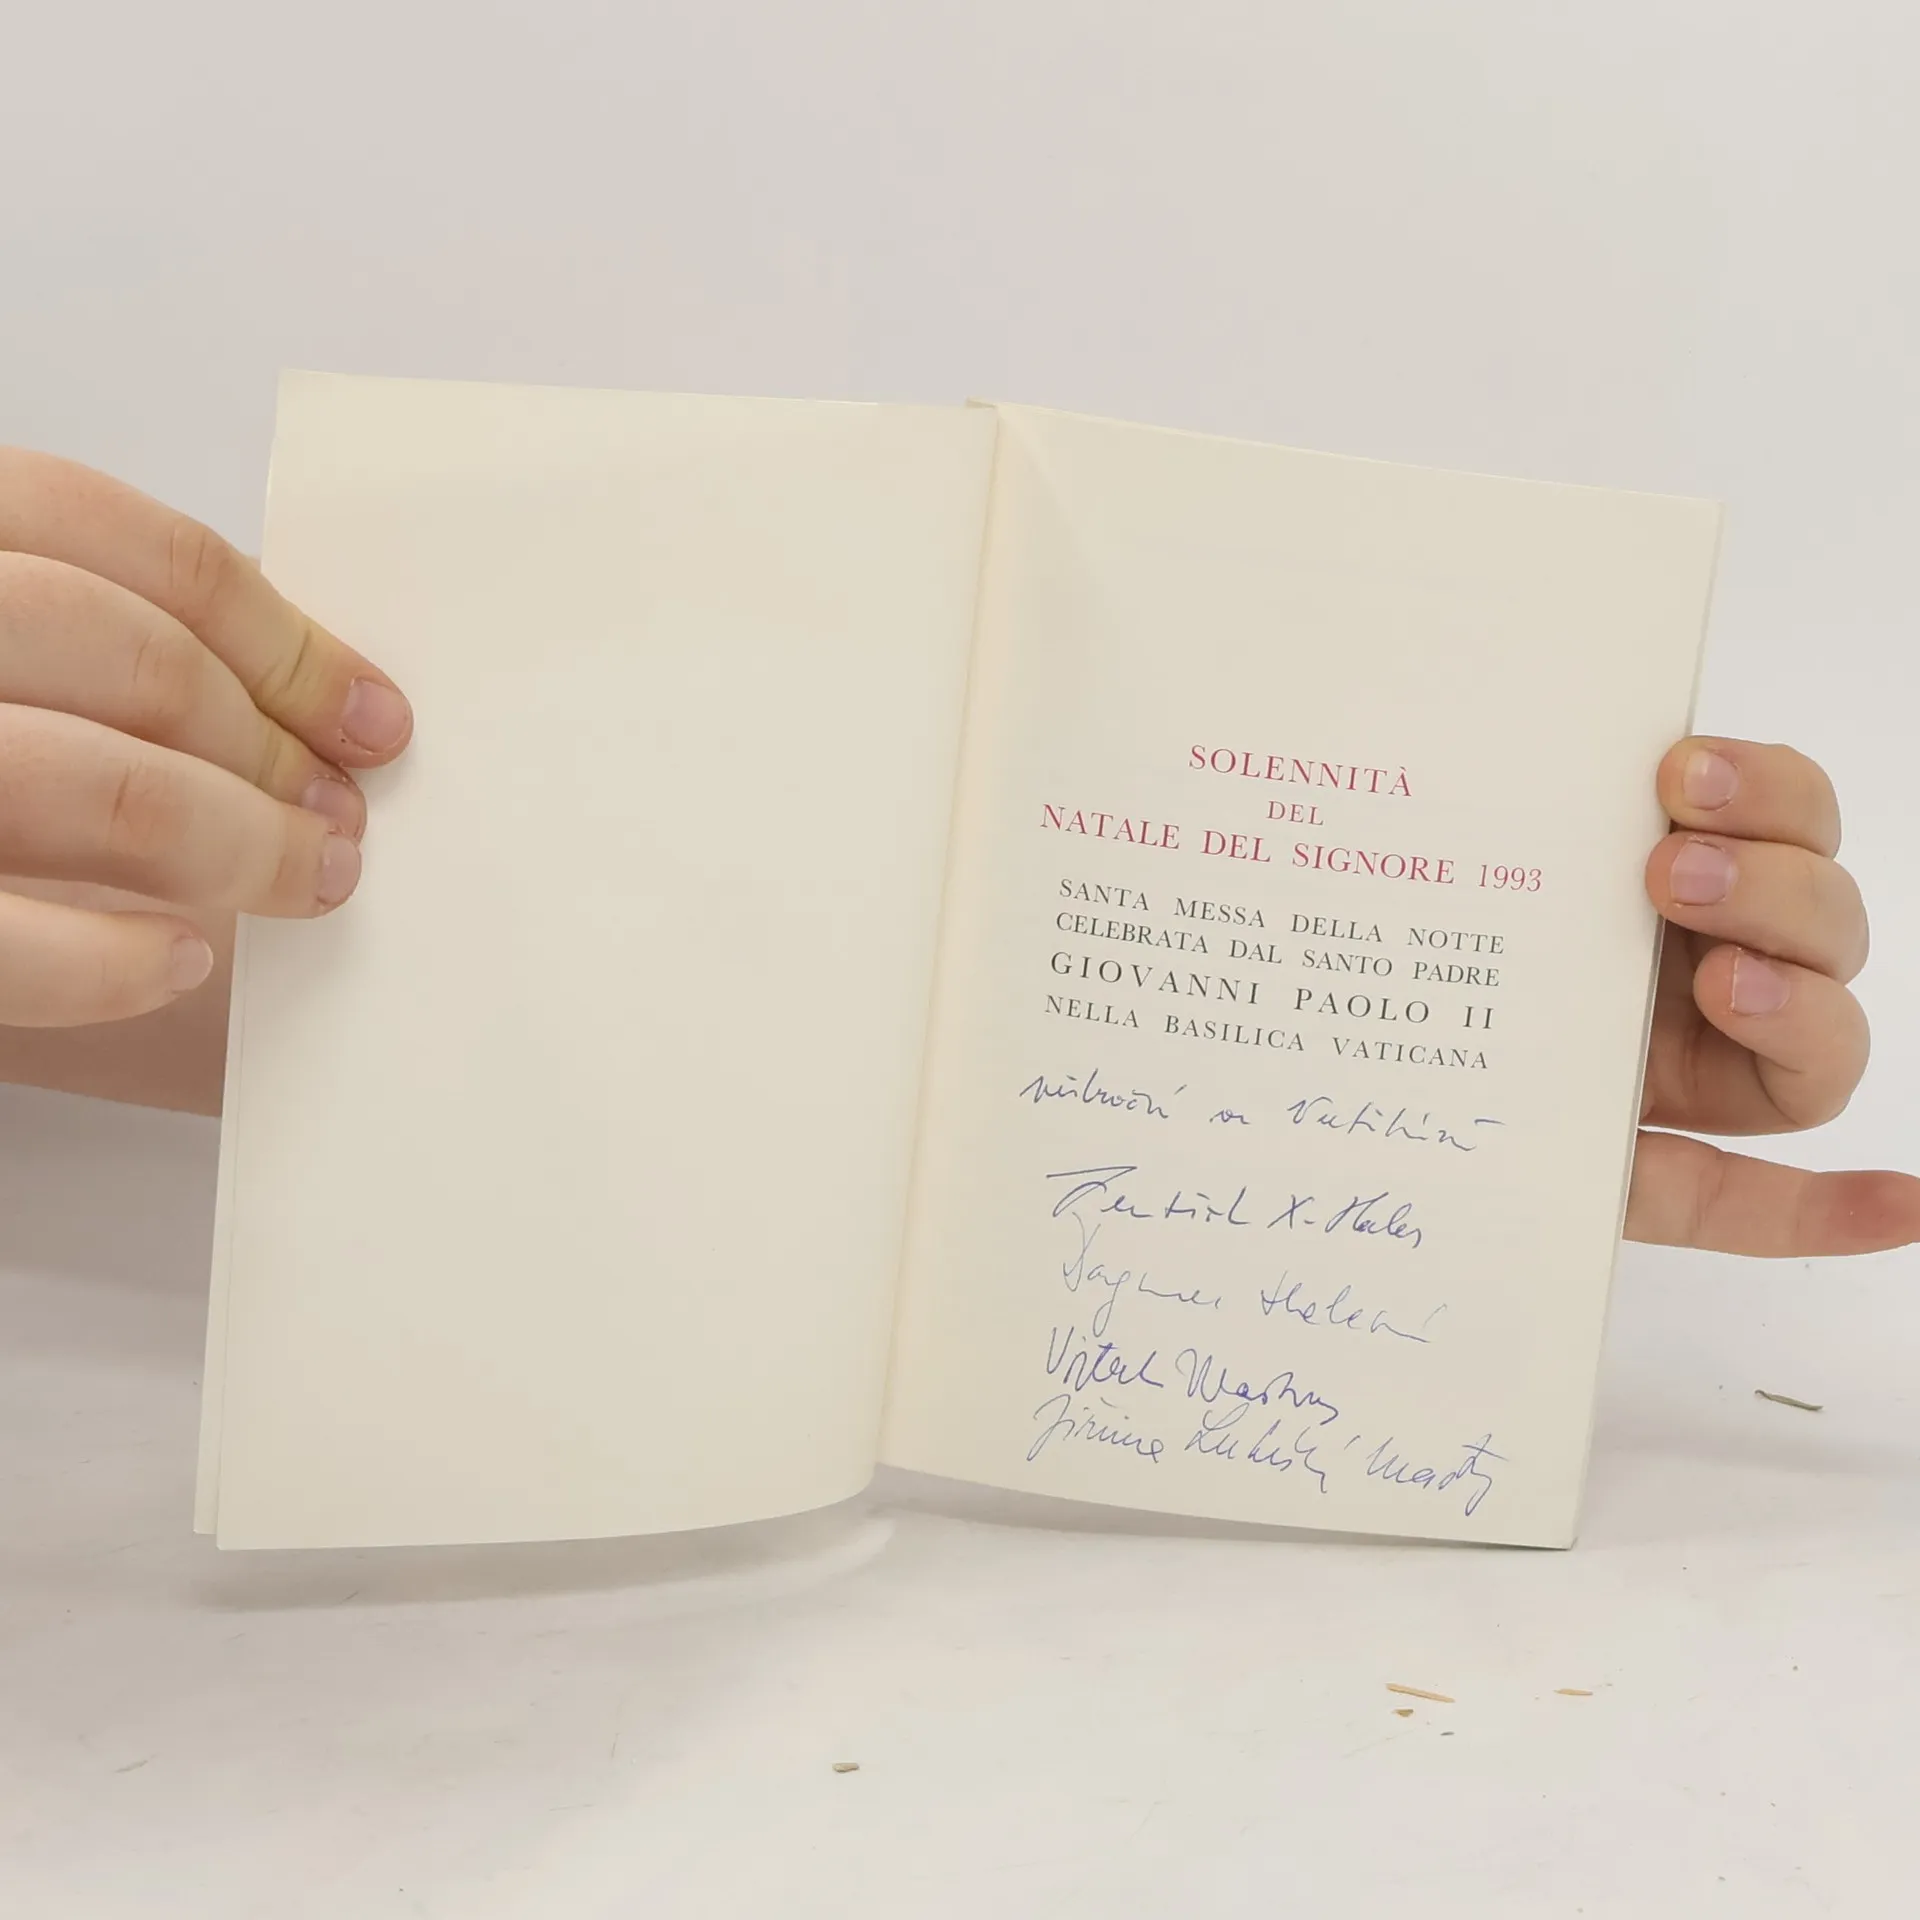 SOLENNITÀ
DEL
NATALE DEL SIGNORE 1993
SANTA MESSA DELLA NOTTE
CELEBRATA DAL SANTO PADRE
GIOVANNI PAOLO II
NELLA BASILICA VATICANA
ve Vatikáně
František X. Halas
Dagmar Halasová
Vojtěch
Jiřina